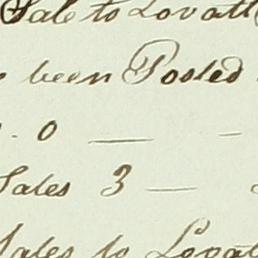 Sale to Lovatt
been Posted
0 — -
Sales 3 —
Sales to Lovat